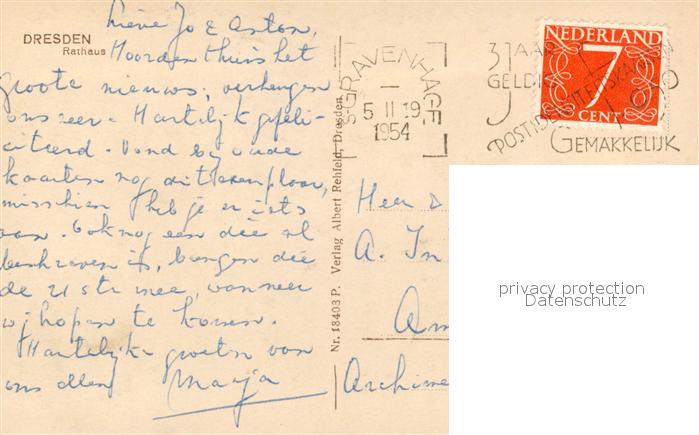 DRESDEN
Rathaus
Lieve Jo & Aston,
Hoorden thuis het
groote nieuws, verheugen
ons zeer. Hartelijk gefeli-
citeerd. Vond bij oude
kaarten nog dit exemplaar,
misschien heb je er iets
aan. Ook nog een die al
beschreven is, brengen die
de 21ste mee, wanneer
wij hopen te komen.
Hartelijke groeten van
ons allen Marja
Nr. 18403 P. Verlag Albert Rehfeld, Dresden
'S GRAVENHAGE
5 II 19
1954
3 JAAR
GELDIG
POSTIDENTITEITSKAART
GEMAKKELIJK
NEDERLAND
7
CENT
Heer
A. In
Am
Archime
privacy protection
Datenschutz